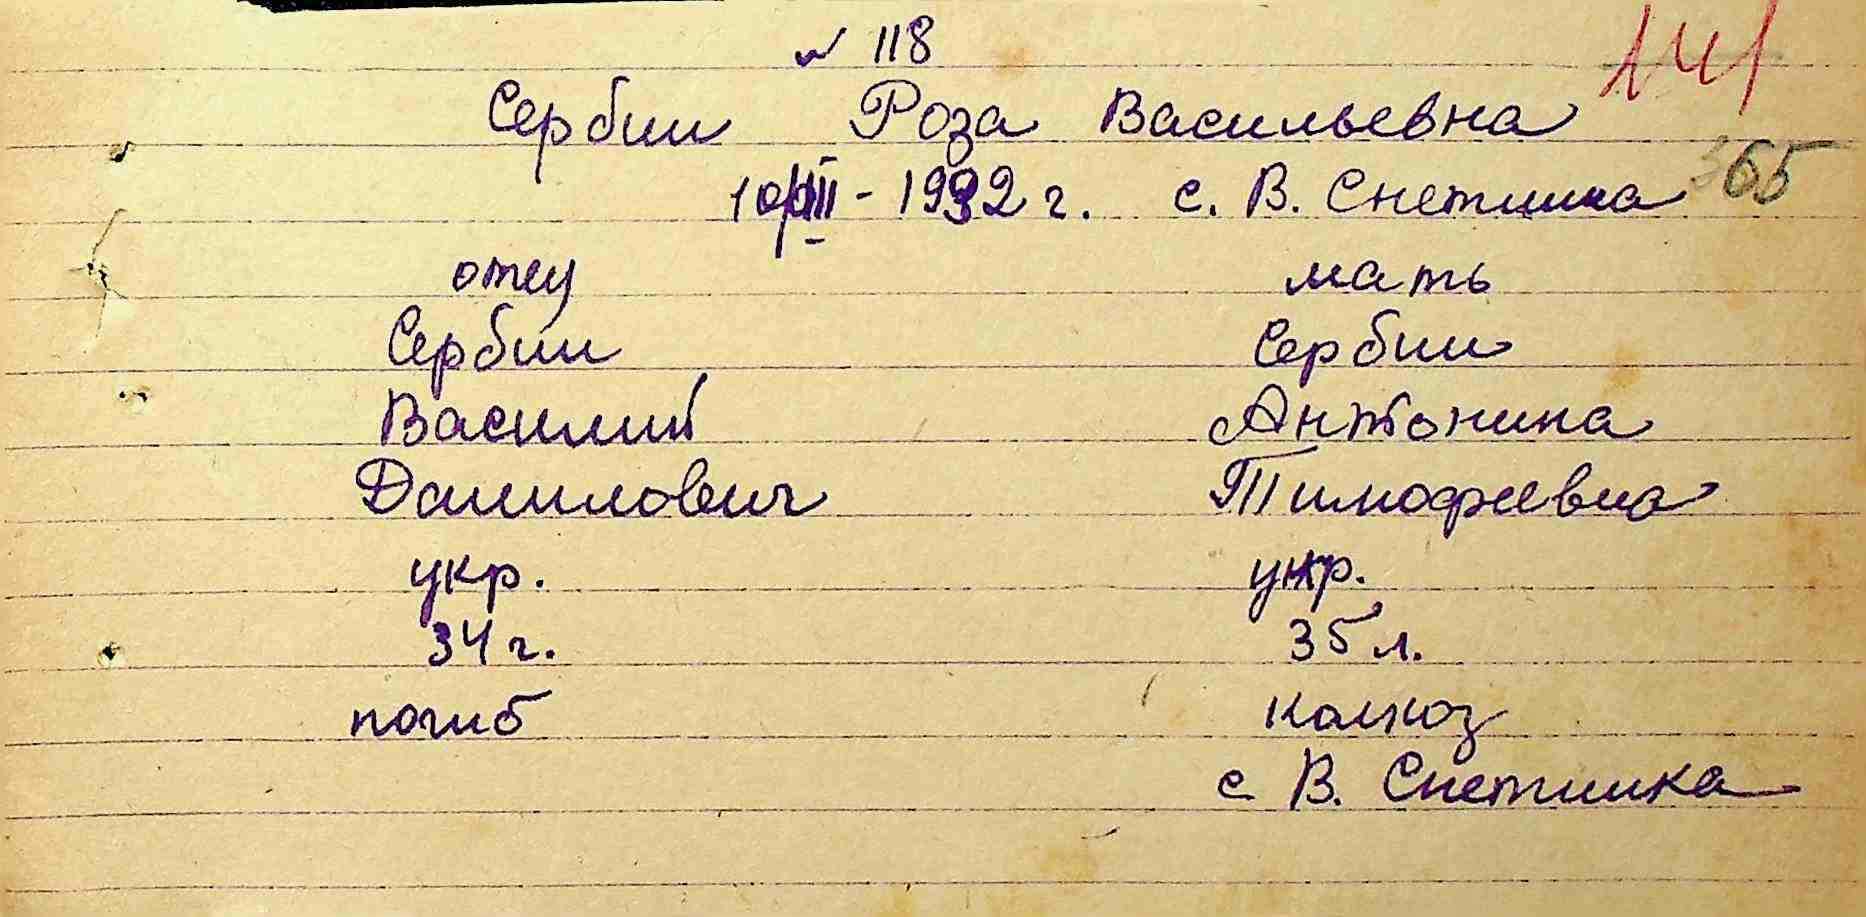 № 118
141
Сербин Роза Васильевна
10/VIII - 1932 г. с. В. Снетинка 365
отец мать
Сербин Сербин
Василий Антонина
Данилович Тимофеевна
укр. укр.
34 г. 35 л.
погиб колхоз
с В. Снетинка